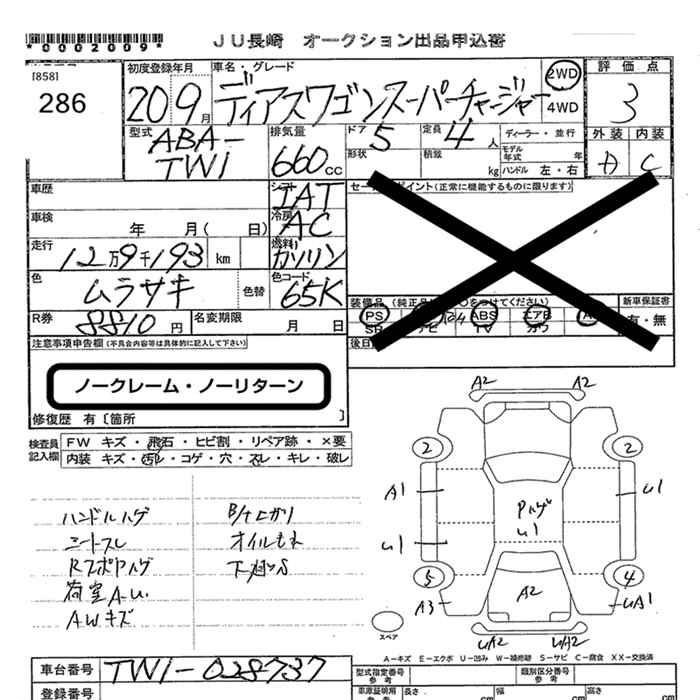 *0002009*
JU長崎 オークション出品申込書
[858]
286
初度登録年月
20 9月
車名・グレード
ディアスワゴンスーパーチャージャー
2WD
4WD
評価点
3
外装 内装
D C
型式
ABA-
TW1
排気量
660cc
ドア 5
定員 4人
ディーラー・並行
形状
積載 kg
モデル年式 年
ハンドル 左・右
車歴
シフト
IAT
車検
年 月( 日)
冷房
AC
走行
12万9千193km
燃料
ガソリン
色
ムラサキ
色替
色コード
65K
R券
8810円
名変期限
月 日
ポイント(正常に機能するものに限ります)
装備品
新車保証書
PS
ABS
エアB
有・無
注意事項申告欄(不具合内容等は具体的に記入して下さい)
ノークレーム・ノーリターン
修復歴 有〔箇所 〕
検査員記入欄
FW キズ・飛石・ヒビ割・リペア跡・×要
内装 キズ・汚レ・コゲ・穴・スレ・キレ・破レ
ハンドルハゲ
シートスレ
RスポYハゲ
荷室A-U.
AWキズ
オイルもれ
A2 A2
2 2
A1 U1
U1
Pハゲ
U1
5 4
A2
A3 UA1
UA2 UA2
スペア
A-キズ E-エクボ U-凹み W-補修跡 S-サビ C-腐食 XX-交換済
車台番号
TW1-028737
登録番号
型式指定番号
参考
類別区分番号
参考
車庫証明用
参考
長さ cm
幅 cm
高さ cm